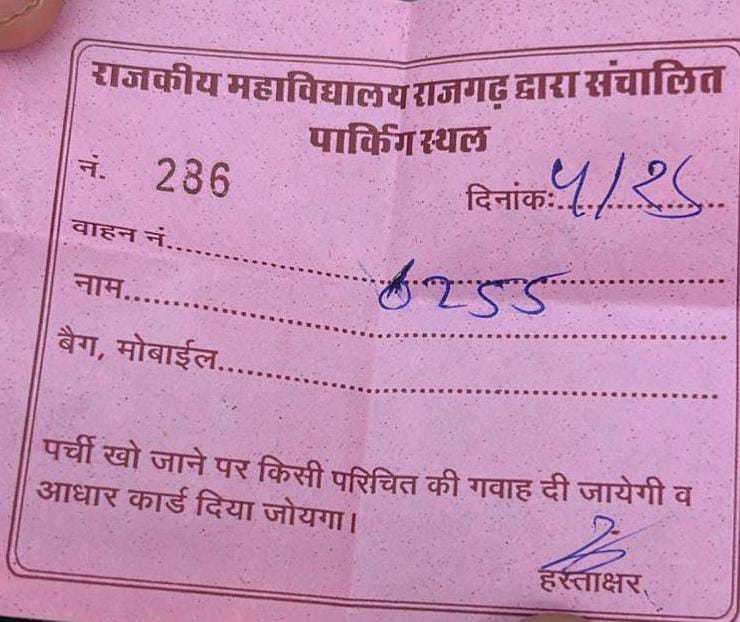 राजकीय महाविद्यालय राजगढ़ द्वारा संचालित
पार्किंग स्थल
नं. 286
दिनांकः
वाहन नं. 6255
नाम
बैग, मोबाईल
पर्ची खो जाने पर किसी परिचित की गवाह दी जायेगी व
आधार कार्ड दिया जोयगा।
हस्ताक्षर